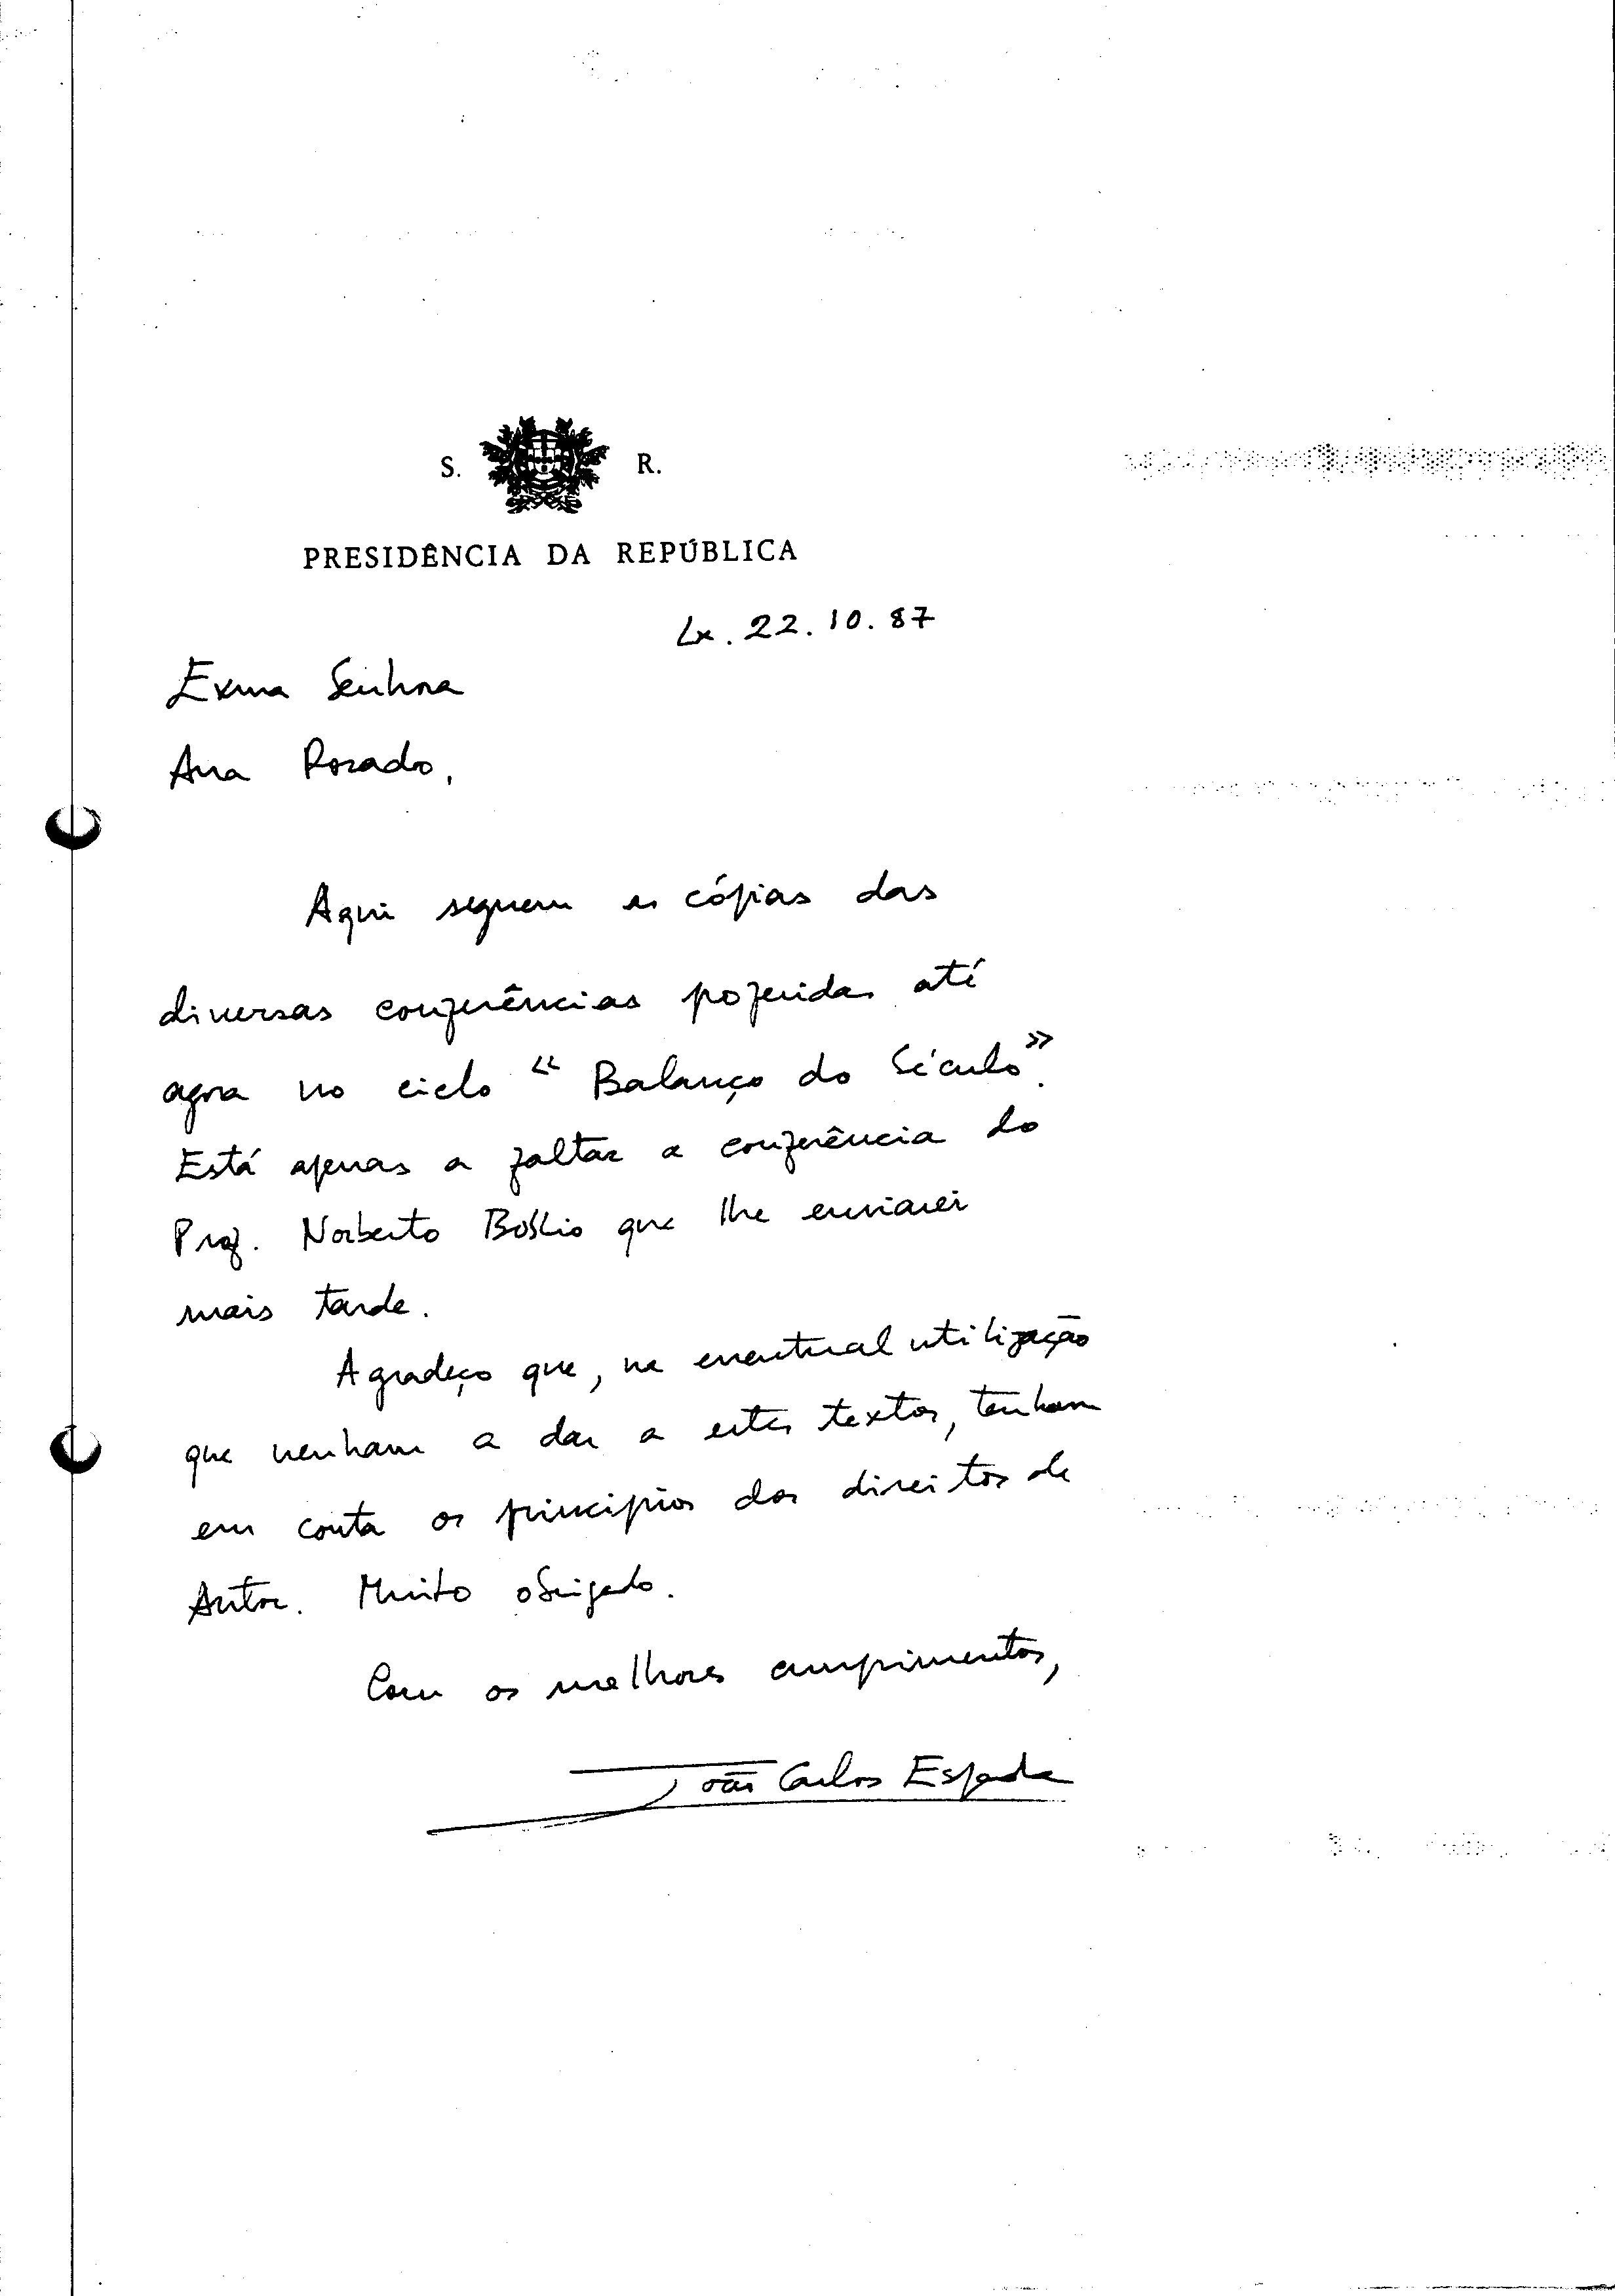 S. R.
PRESIDÊNCIA DA REPÚBLICA
Lx. 22.10.87
Exma Senhora
Ana Rosado,
Aqui seguem as cópias das
diversas conferências proferidas até
agora no ciclo "Balanço do Século".
Está apenas a faltar a conferência do
Prof. Norberto Bobbio que lhe enviarei
mais tarde.
Agradeço que, na eventual utilização
que venham a dar a estes textos, tenham
em conta os princípios dos direitos de
Autor. Muito obrigado.
Com os melhores cumprimentos,
João Carlos Espada